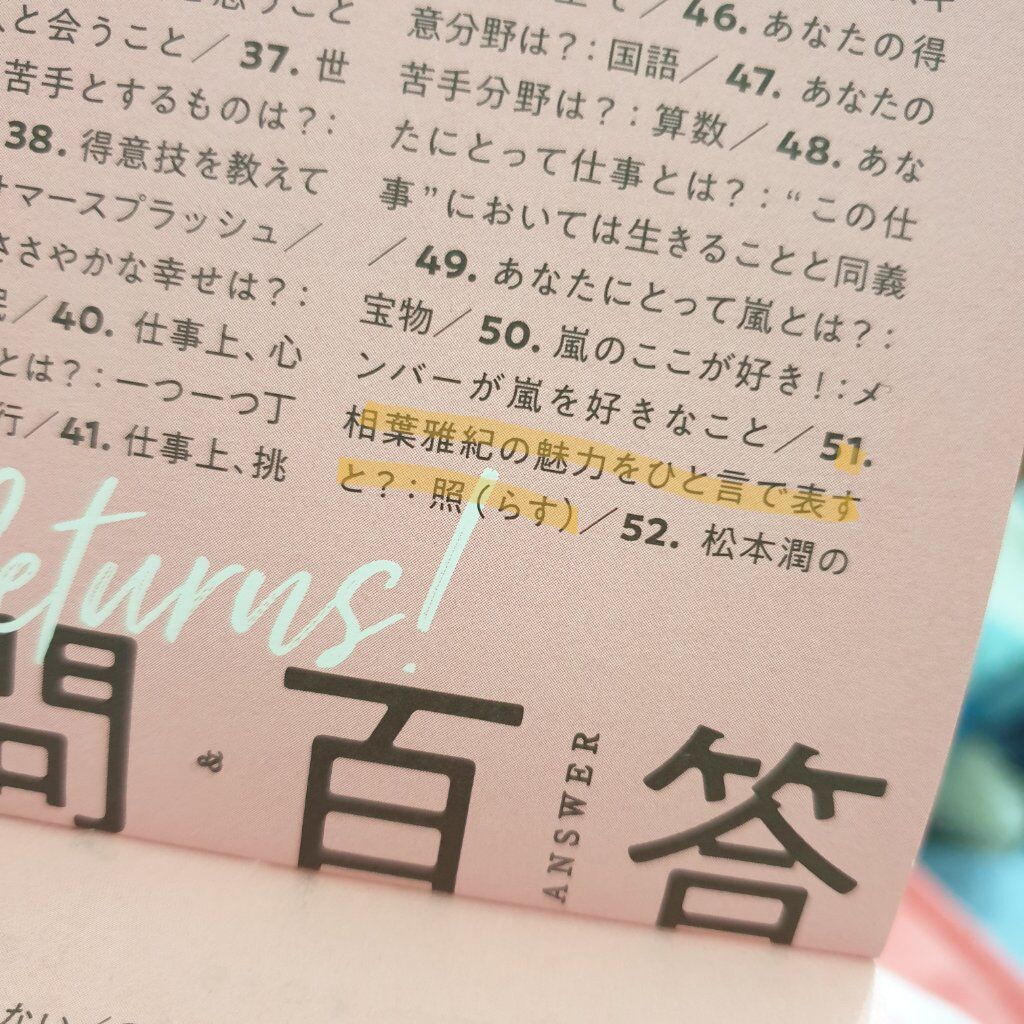 思うこと
と会うこと／37. 世
苦手とするものは？：
38. 得意技を教えて
サマースプラッシュ／
ささやかな幸せは？：
／40. 仕事上、心
とは？：一つ一つ丁
行／41. 仕事上、挑
／46. あなたの得
意分野は？：国語／47. あなたの
苦手分野は？：算数／48. あな
たにとって仕事とは？：“この仕
事”においては生きることと同義
／49. あなたにとって嵐とは？：
宝物／50. 嵐のここが好き！：メ
ンバーが嵐を好きなこと／51.
相葉雅紀の魅力をひと言で表す
と？：照（らす）／52. 松本潤の
Returns!
問 & 百 ANSWER 答
ない